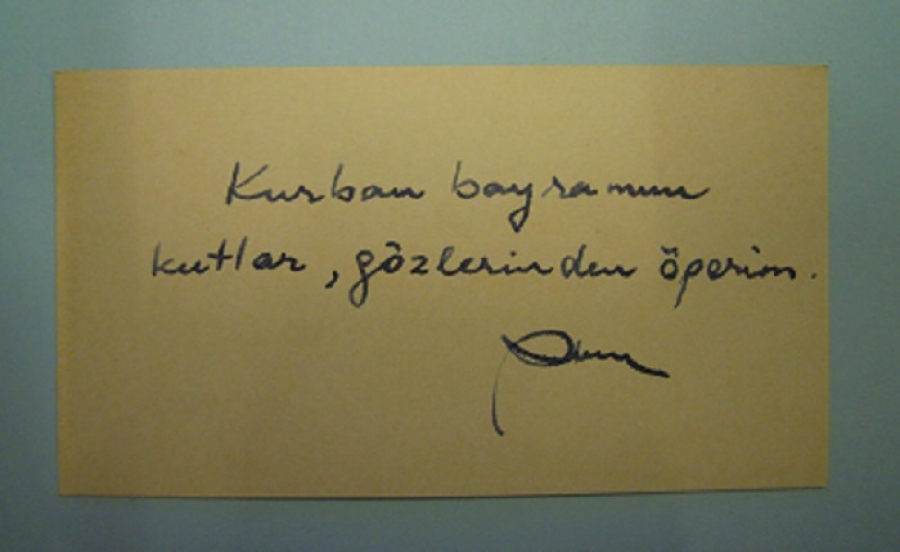 Kurban bayramını
kutlar, gözlerinden öperim.